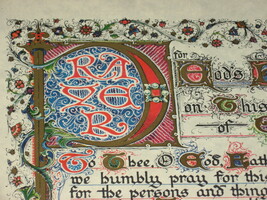 PRAYER
for God's
on This
of
To Thee, O God,
be humbly pray for this
for the persons and thing